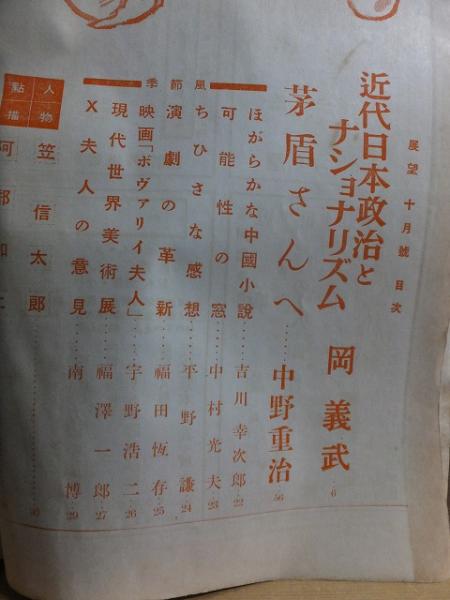 展望 十月號 目次
近代日本政治と
ナショナリズム 岡義武 6
茅盾さんへ 中野重治 56
ほがらかな中國小說 吉川幸次郎 22
可能性の窓 中村光夫 23
風ちひさな感想 平野謙 24
節演劇の革新 福田恆存 25
季映画「ボヴァリイ夫人」 宇野浩二 26
現代世界美術展 福澤一郎 27
X夫人の意見 南博 29
人物點描
笠信太郎